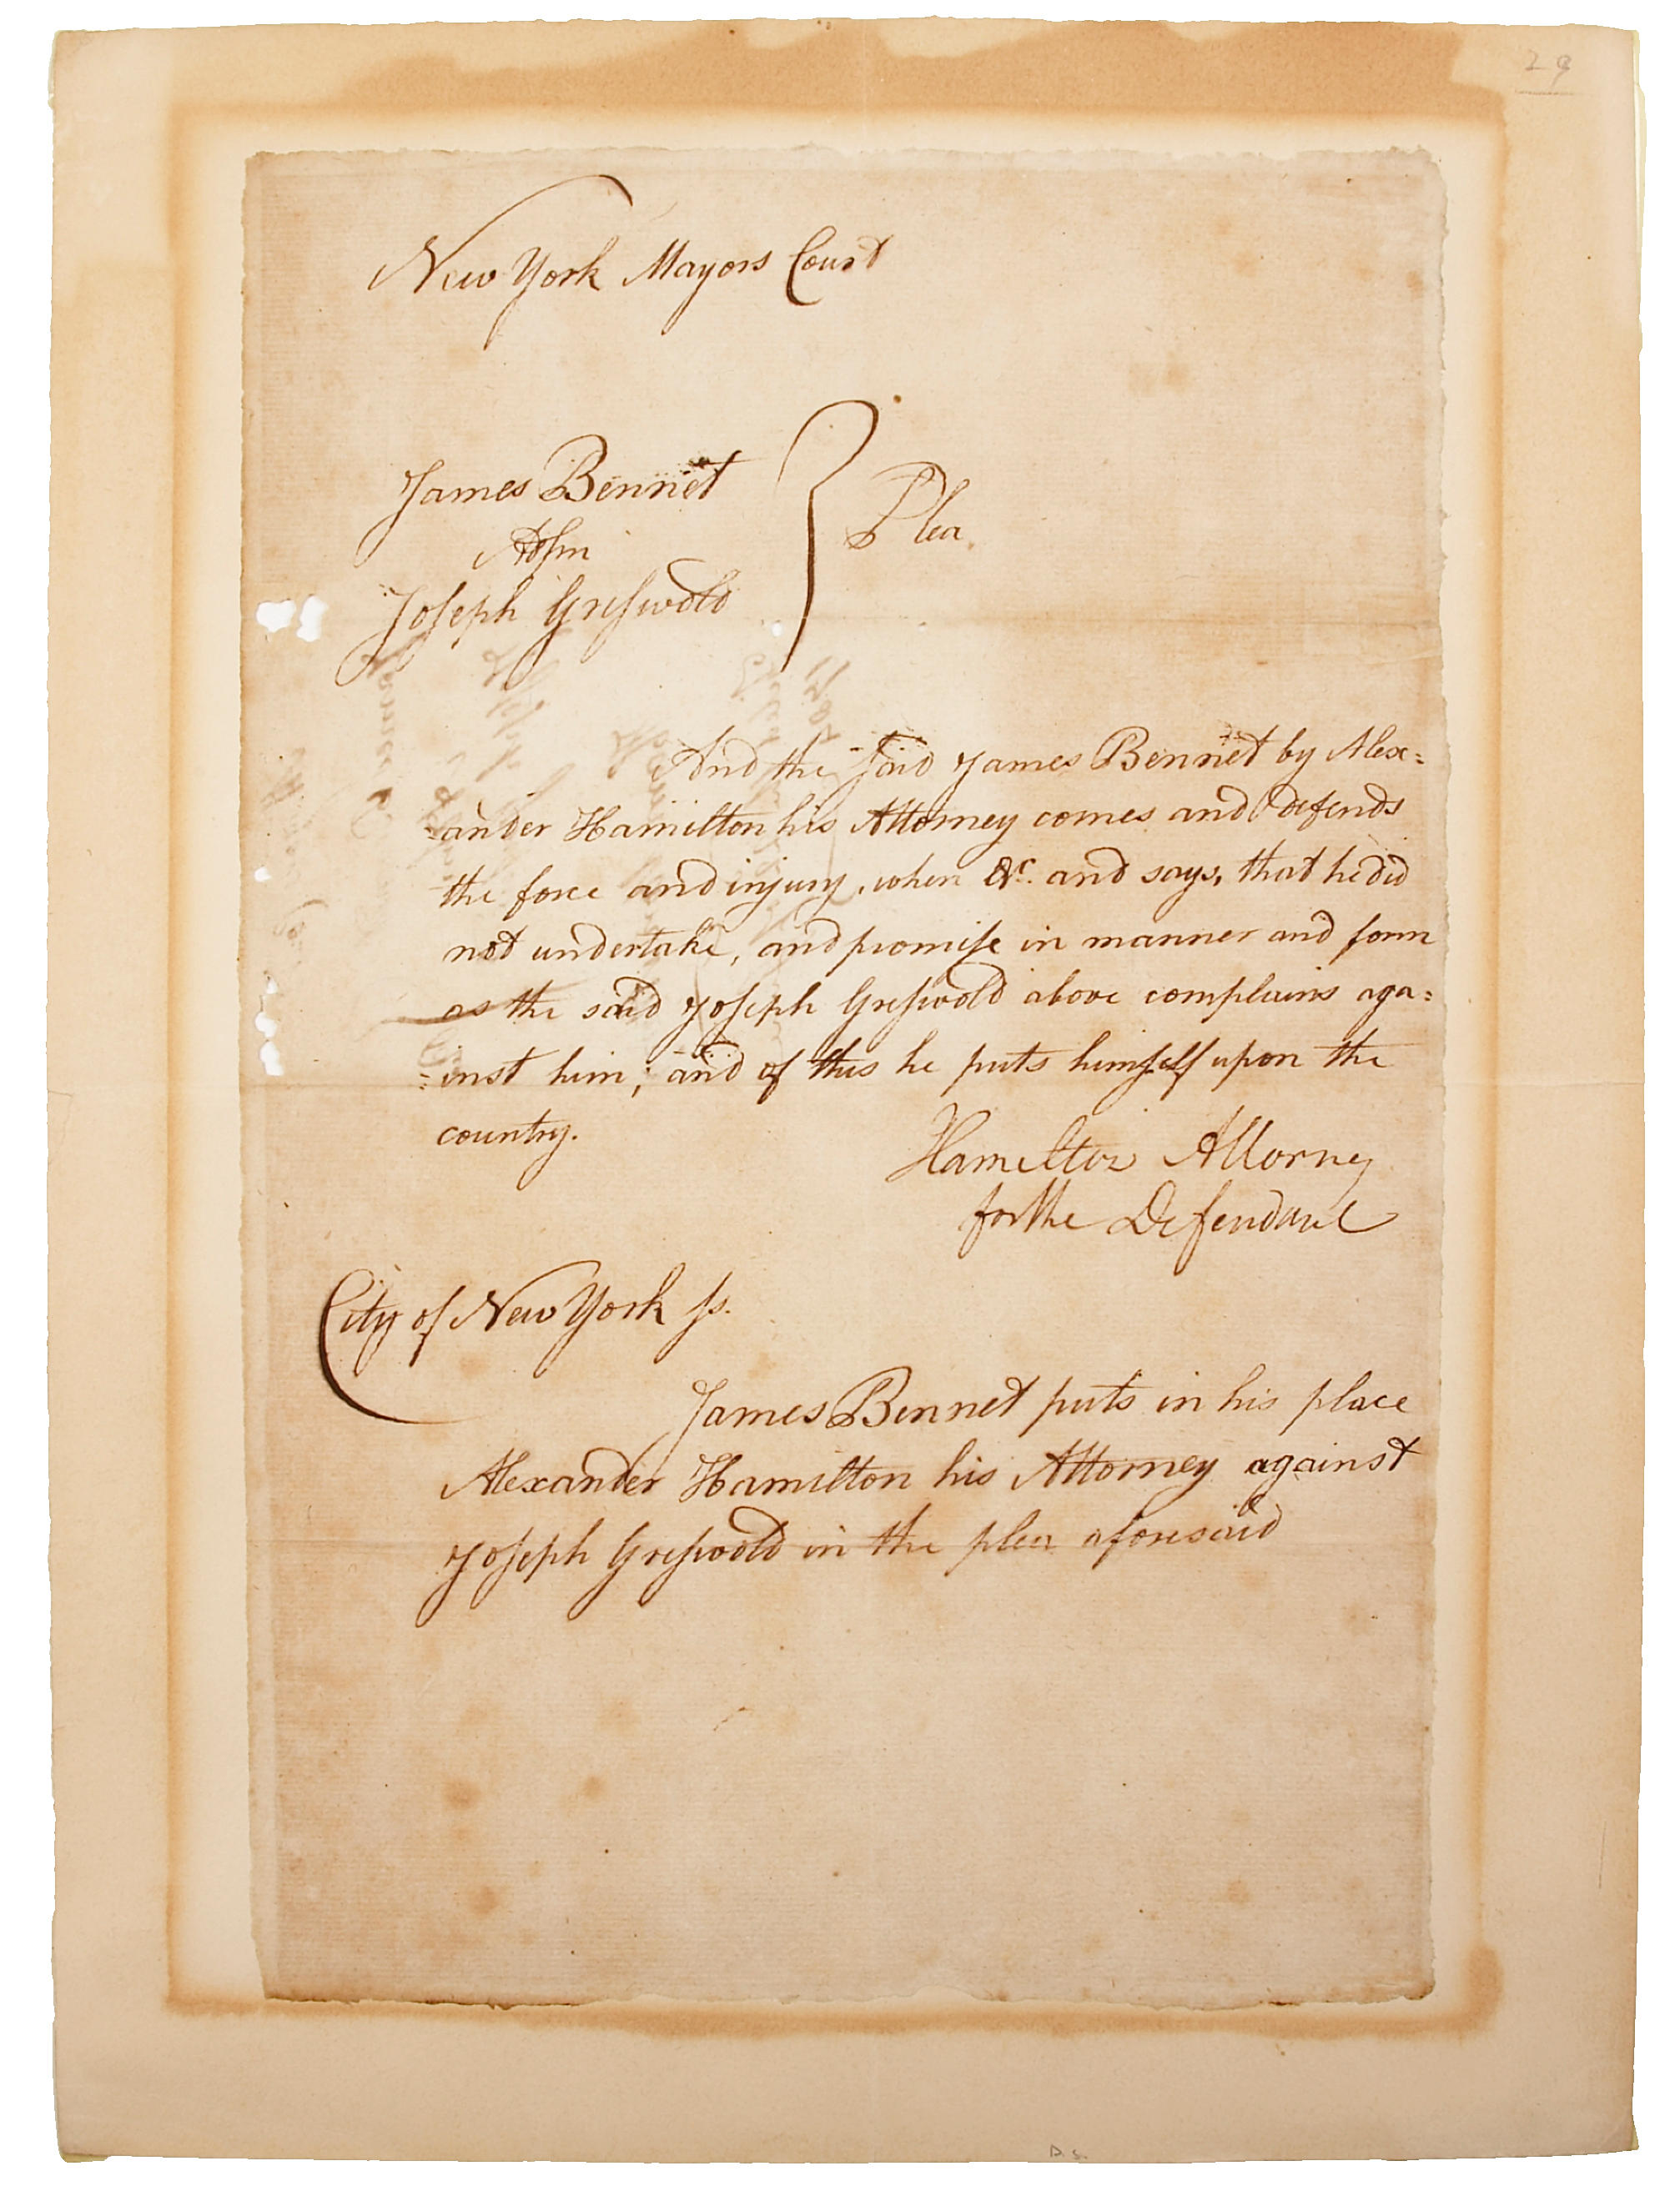 29
New York Mayors Court
James Bennet
Adsm
Joseph Greswold
Plea
And the said James Bennet by Alex=
=ander Hamilton his Attorney comes and defends
the force and injury, when &c. and says, that he did
not undertake, and promise in manner and form
as the said Joseph Greswold above complains aga=
=inst him; and of this he puts himself upon the
country.
Hamilton Attorney
for the Defendant
City of New York ss.
James Bennet puts in his place
Alexander Hamilton his Attorney against
Joseph Greswold in the plea aforesaid
D.S.